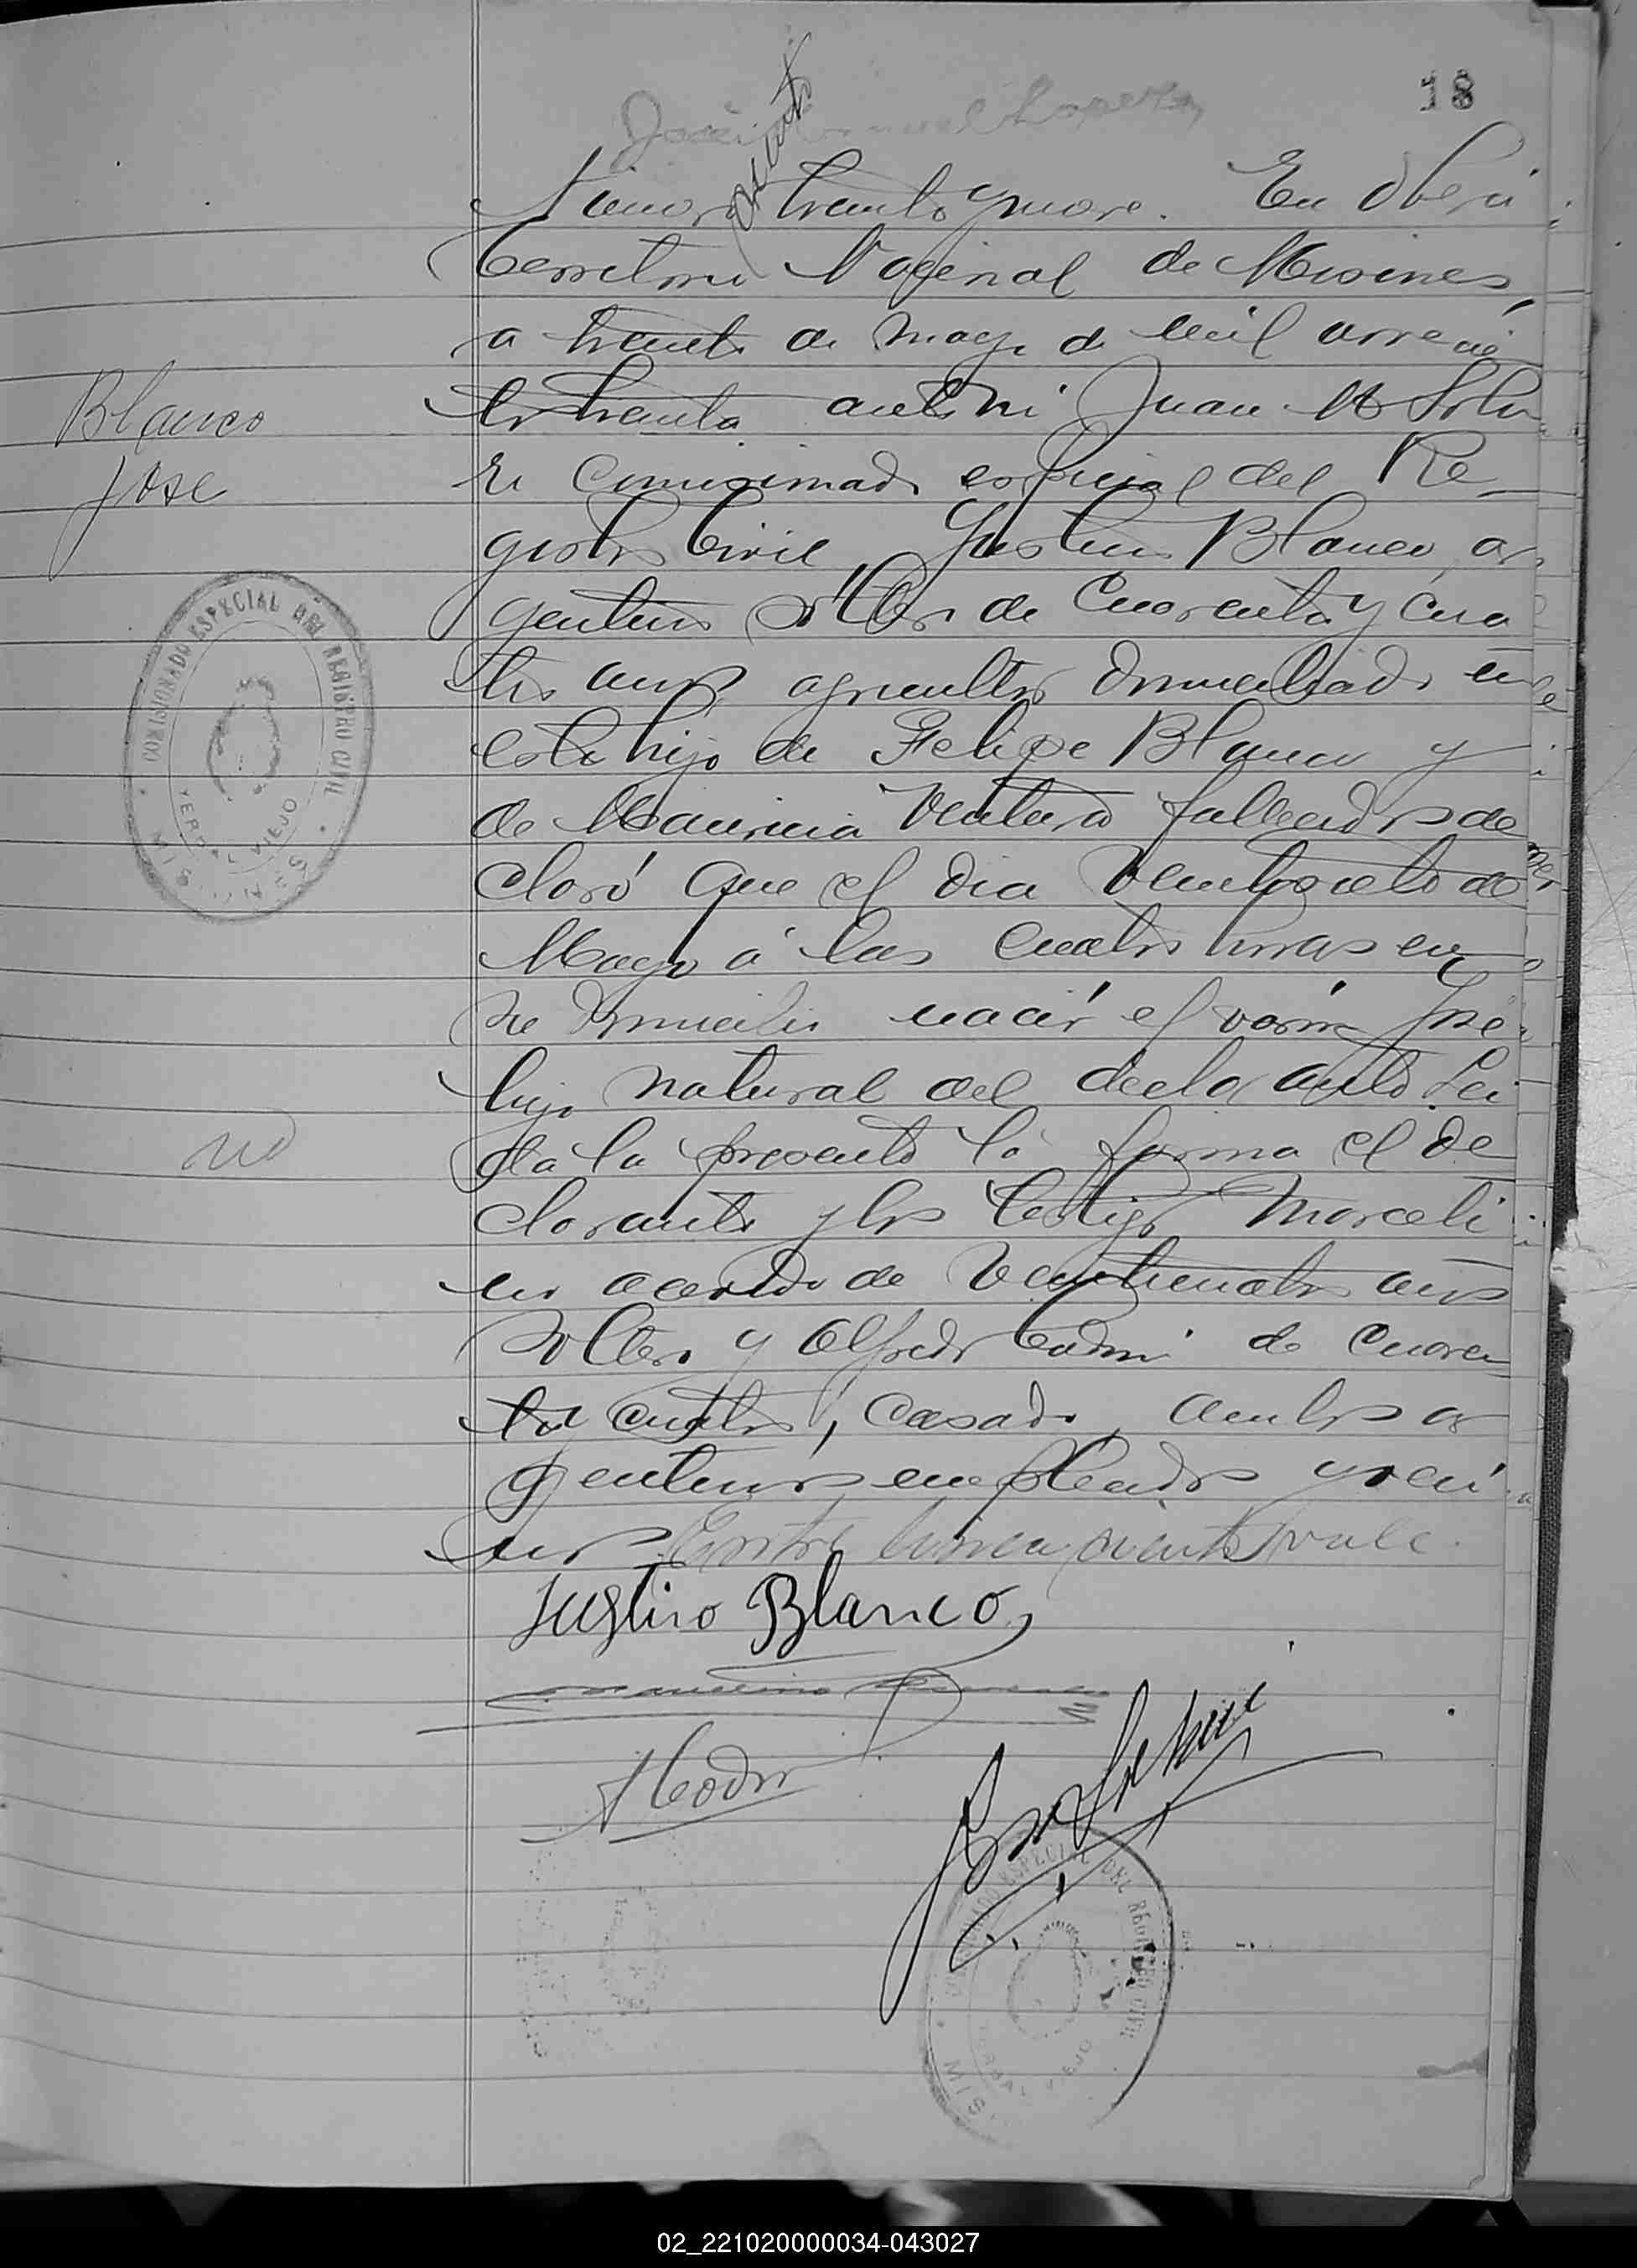 18
José Manuel
ciento
Número treinta y nueve. En Oberá
Territorio Nacional de Misiones,
a treinta de mayo de mil novecien
tos treinta ante mi Juan
comisionado especial del Re
gistro Civil, Justino Blanco, ar
gentino soltero de cuarenta y cua
tro años agricultor domiciliado en
este hijo de Felipe Blanco y
de Mauricia fallecidos de
claró que el dia veintisiete de
Mayo á las cuatro horas en
su domicilio nació el varón José
hijo natural del declarante. Lei
da la presente la firma el de
clarante y los testigos Marceli
no de veinticuatro años
soltero y Alfredo de cuaren
ta y cuatro, casado, ambos ar
gentinos empleados y veci
nos Entre linea ciento vale.
Justino Blanco
Blanco
José
COMISIONADO ESPECIAL DEL REGISTRO CIVIL
YERBAL VIEJO
no
COMISIONADO ESPECIAL DEL REGISTRO CIVIL
YERBAL VIEJO
02_221020000034-043027